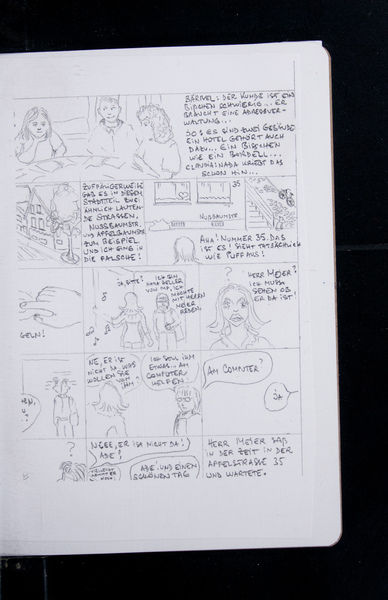 BÄRBEL: DER KUNDE IST EIN
BISSCHEN SCHWIERIG... ER
BRAUCHT EINE ADRESSVER-
WALTUNG...
JO: ES SIND ZWEI GEBÄUDE
EIN HOTEL GEHÖRT AUCH
DAZU... EIN BISSCHEN
WIE EIN BORDELL....
CLAUDIA: NADA KRIEGT DAS
SCHON HIN...
ZUFÄLLIGERWEISE
GAB ES IN DIESEM
STADTTEIL ZWEI
ÄHNLICH LAUTEN-
DE STRASSEN,
NUSSBAUMSTR.
UND APFELBAUMSTR.
ZUM BEISPIEL
UND ICH GING IN
DIE FALSCHE!
35
NUSSBAUMSTR
AHA! NUMMER 35. DAS
IST ES! SIEHT TATSÄCHLICH
WIE PUFF AUS!
GELN!
JA, BITTE?
ICH BIN
NADA
VON MP, ICH
MÖCHTE
MIT HERRN
MEIER
REDEN.
?
HERR MEIER?
ICH MUSS
SEHEN OB
ER DA IST!
NE, ER IST
NICHT DA. WAS
WOLLEN SIE
VON
IHM?
ICH SOLL IHM
ETWAS... AM
COMPUTER
HELFEN..
AM COMPUTER?
JA
?
NEEE, ER IST NICHT DA!
ADE!
ADE! UND EINEN
SCHÖNEN TAG
HERR MEIER SASS
IN DER ZEIT IN DER
APFELSTRASSE 35
UND WARTETE.